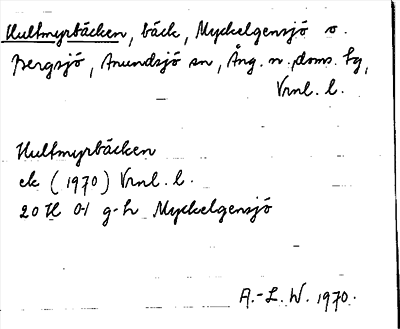 Hultmyrbäcken, bäck, Myckelgensjö o.
Bergsjö, Anundsjö sn, Ång. n. doms. tg,
Vrnl. l.
Hultmyrbäcken
ek (1970) Vrnl. l.
20 H 0-1 g-h Myckelgensjö
A.-L. W. 1970.